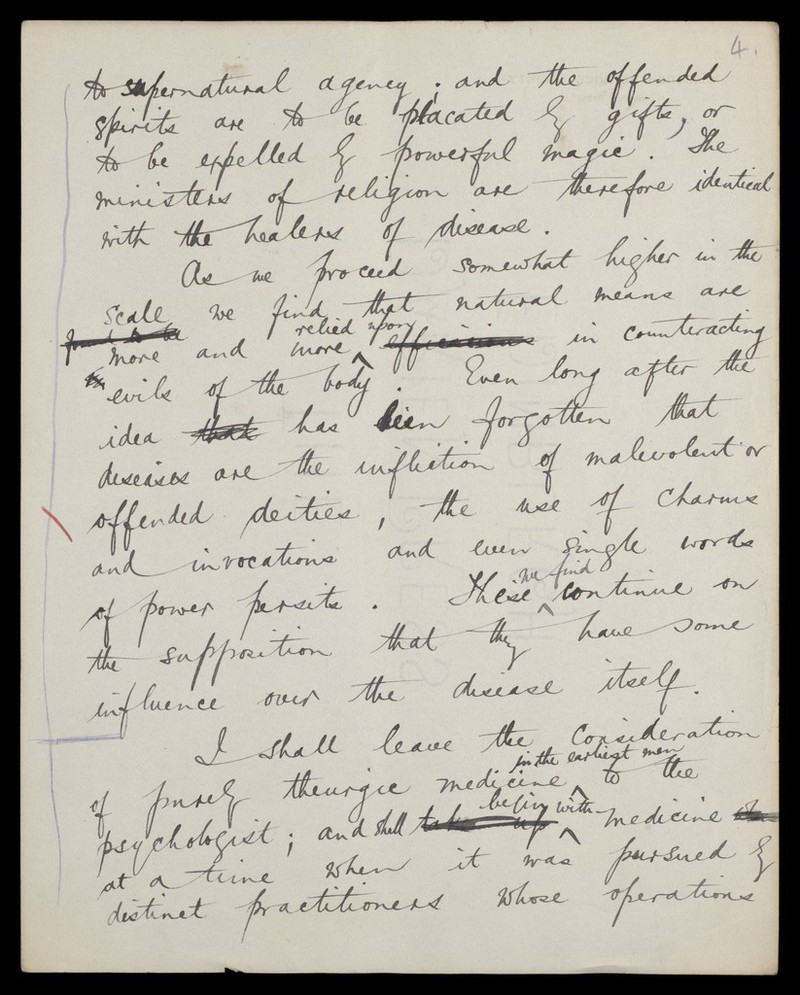 4.
to supernatural agency; and the offended
spirits are to be placated by gifts, or
to be expelled by powerful magic. The
ministers of religion are therefore identical
with the healers of disease.
As we proceed somewhat higher in the
scale we find that natural means are
found to be relied upon
more and more efficacious in counteracting
evils of the body. Even long after the
idea that has been forgotten that
diseases are the infliction of malevolent or
offended deities, the use of charms
and invocations and even single words
of power persits. These continue on
we find
the supposition that they have some
influence over the disease itself.
I shall leave the consideration
of purely theurgic medicine to the
in the earliest men
psychologist; and shall take up medicine
begin with
at a time when it was pursued by
distinct practitioners whose operations